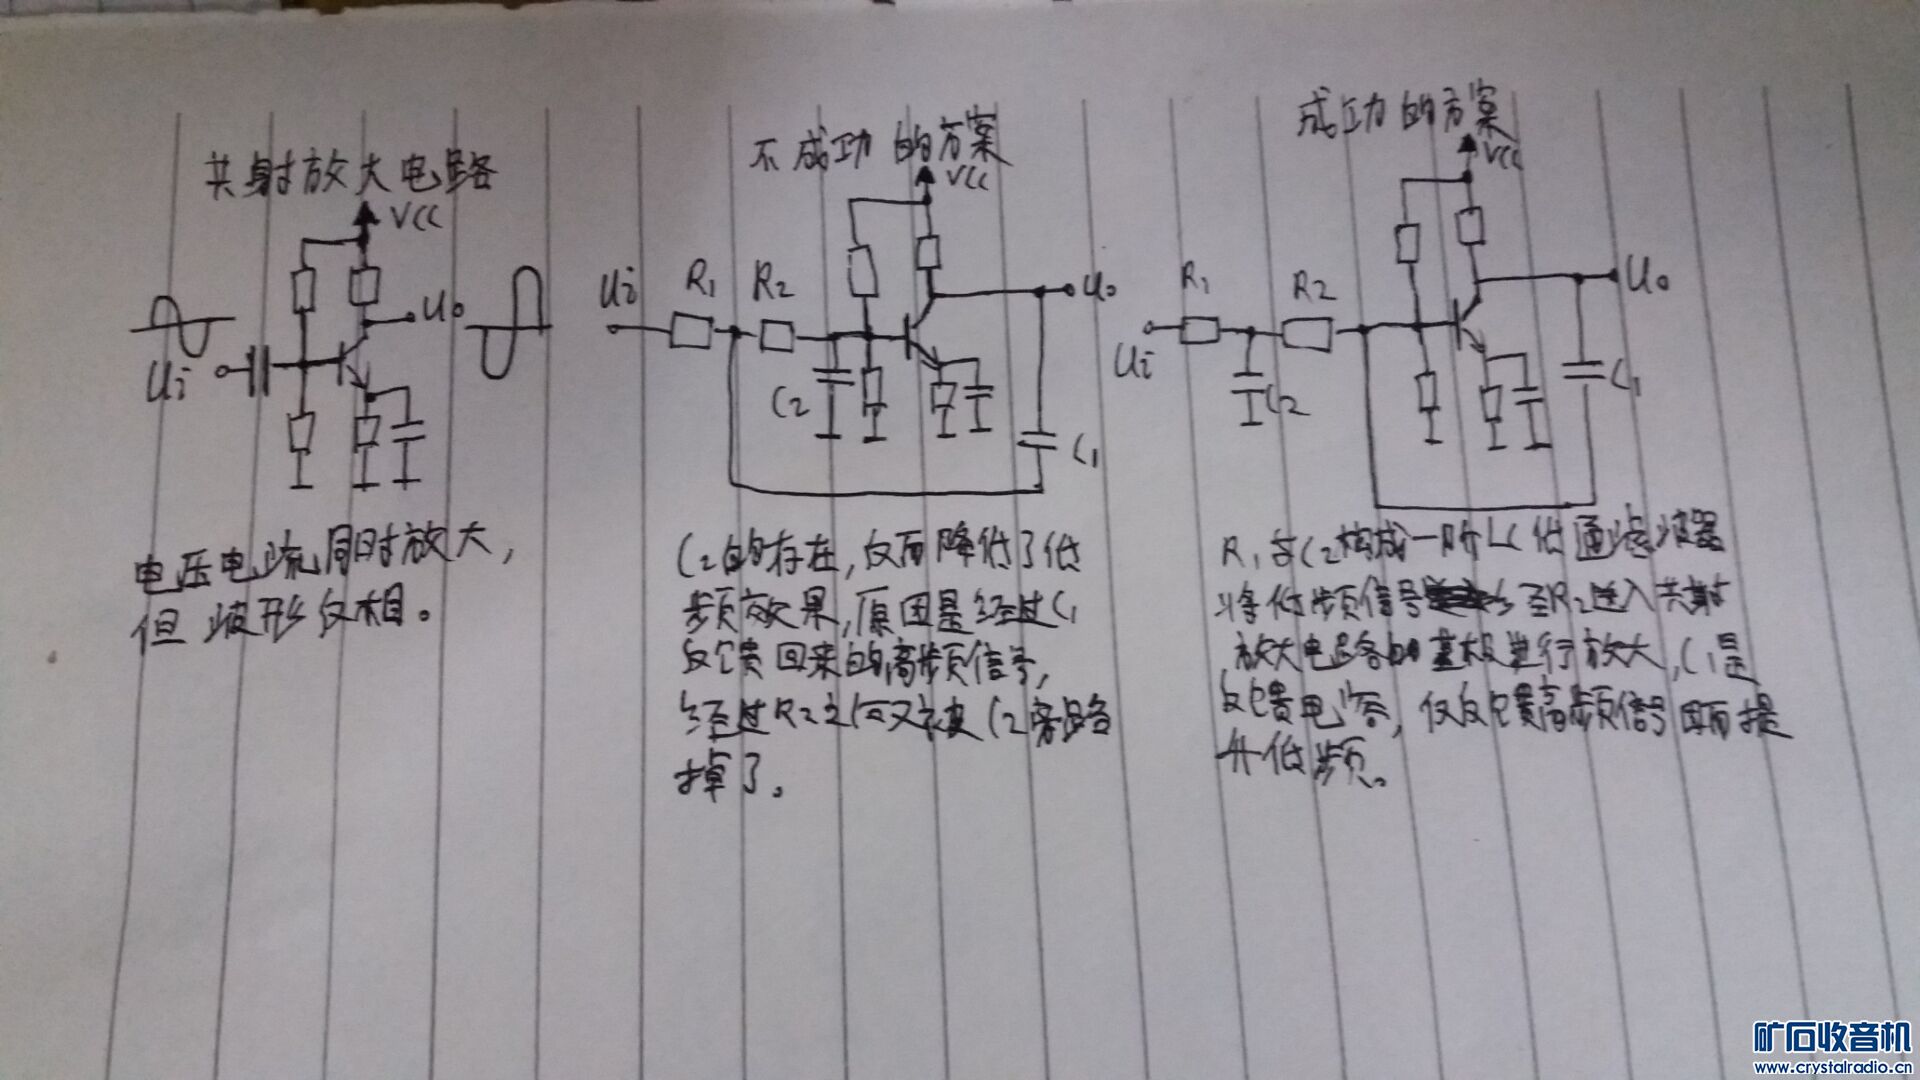 共射放大电路
VCC
Uo
Ui
电压电流同时放大,
但波形反相。
不成功的方案
VCC
Ui
R1
R2
Uo
C2
C1
C2的存在,反而降低了低
频效果,原因是经过C1
反馈回来的高频信号,
经过R2之后又被C2旁路
掉了。
成功的方案
VCC
R1
R2
Uo
Ui
C2
C1
R1与C2构成一阶LC低通滤波器
将低频信号 至R2进入共射
放大电路的基极进行放大,C1是
反馈电容,仅反馈高频信号 而提
升低频。
矿石收音机
www.crystalradio.cn